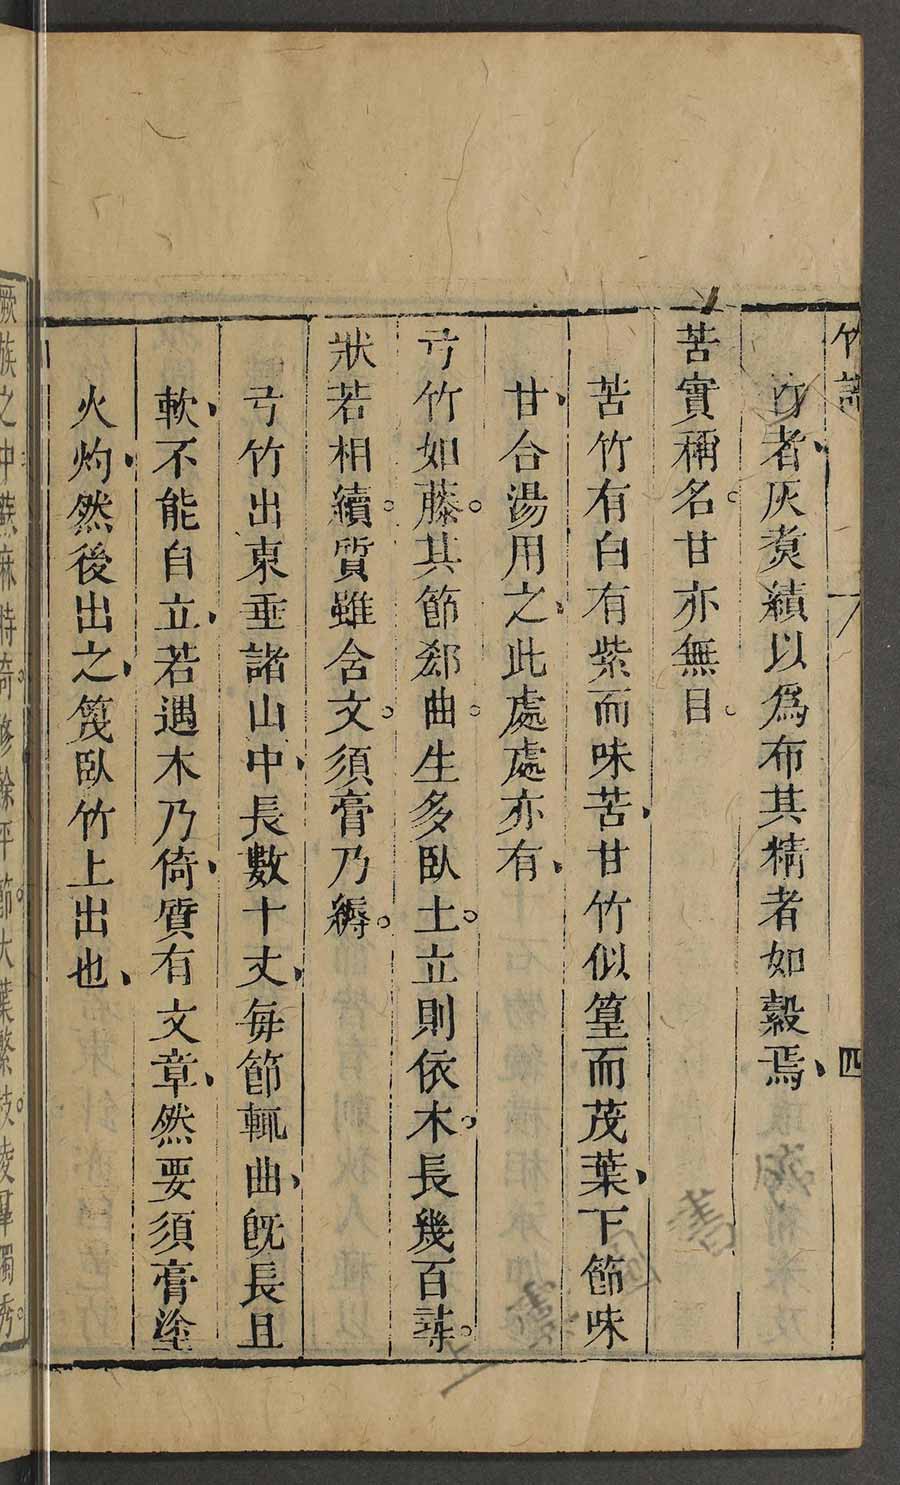 竹譜 四
者灰煑績以爲布其精者如縠焉
苦實稱名甘亦無目
苦竹有白有紫而味苦甘竹似篁而茂葉下節味
甘合湯用之此處處亦有
弓竹如藤其節郄曲生多臥土立則依木長幾百尋
狀若相續質雖含文須膏乃縟
弓竹出東垂諸山中長數十丈每節輒曲旣長且
軟不能自立若遇木乃倚質有文章然要須膏塗
火灼然後出之篾臥竹上出也
厥族之中蘇麻特奇修榦平節大葉繁枝凌羣獨秀